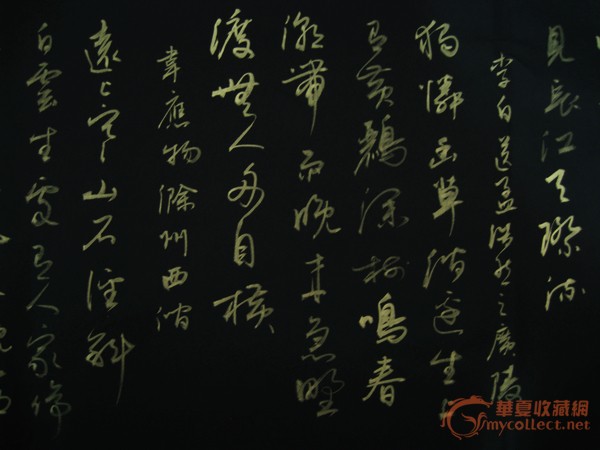 見長江天際流
李白送孟浩然之廣陵
獨憐幽草澗邊生上
有黃鸝深樹鳴春
潮帶雨晚来急野
渡無人舟自橫
韋應物滁州西澗
遠上寒山石徑斜
白雲生處有人家停
華夏收藏網
mycollect.net